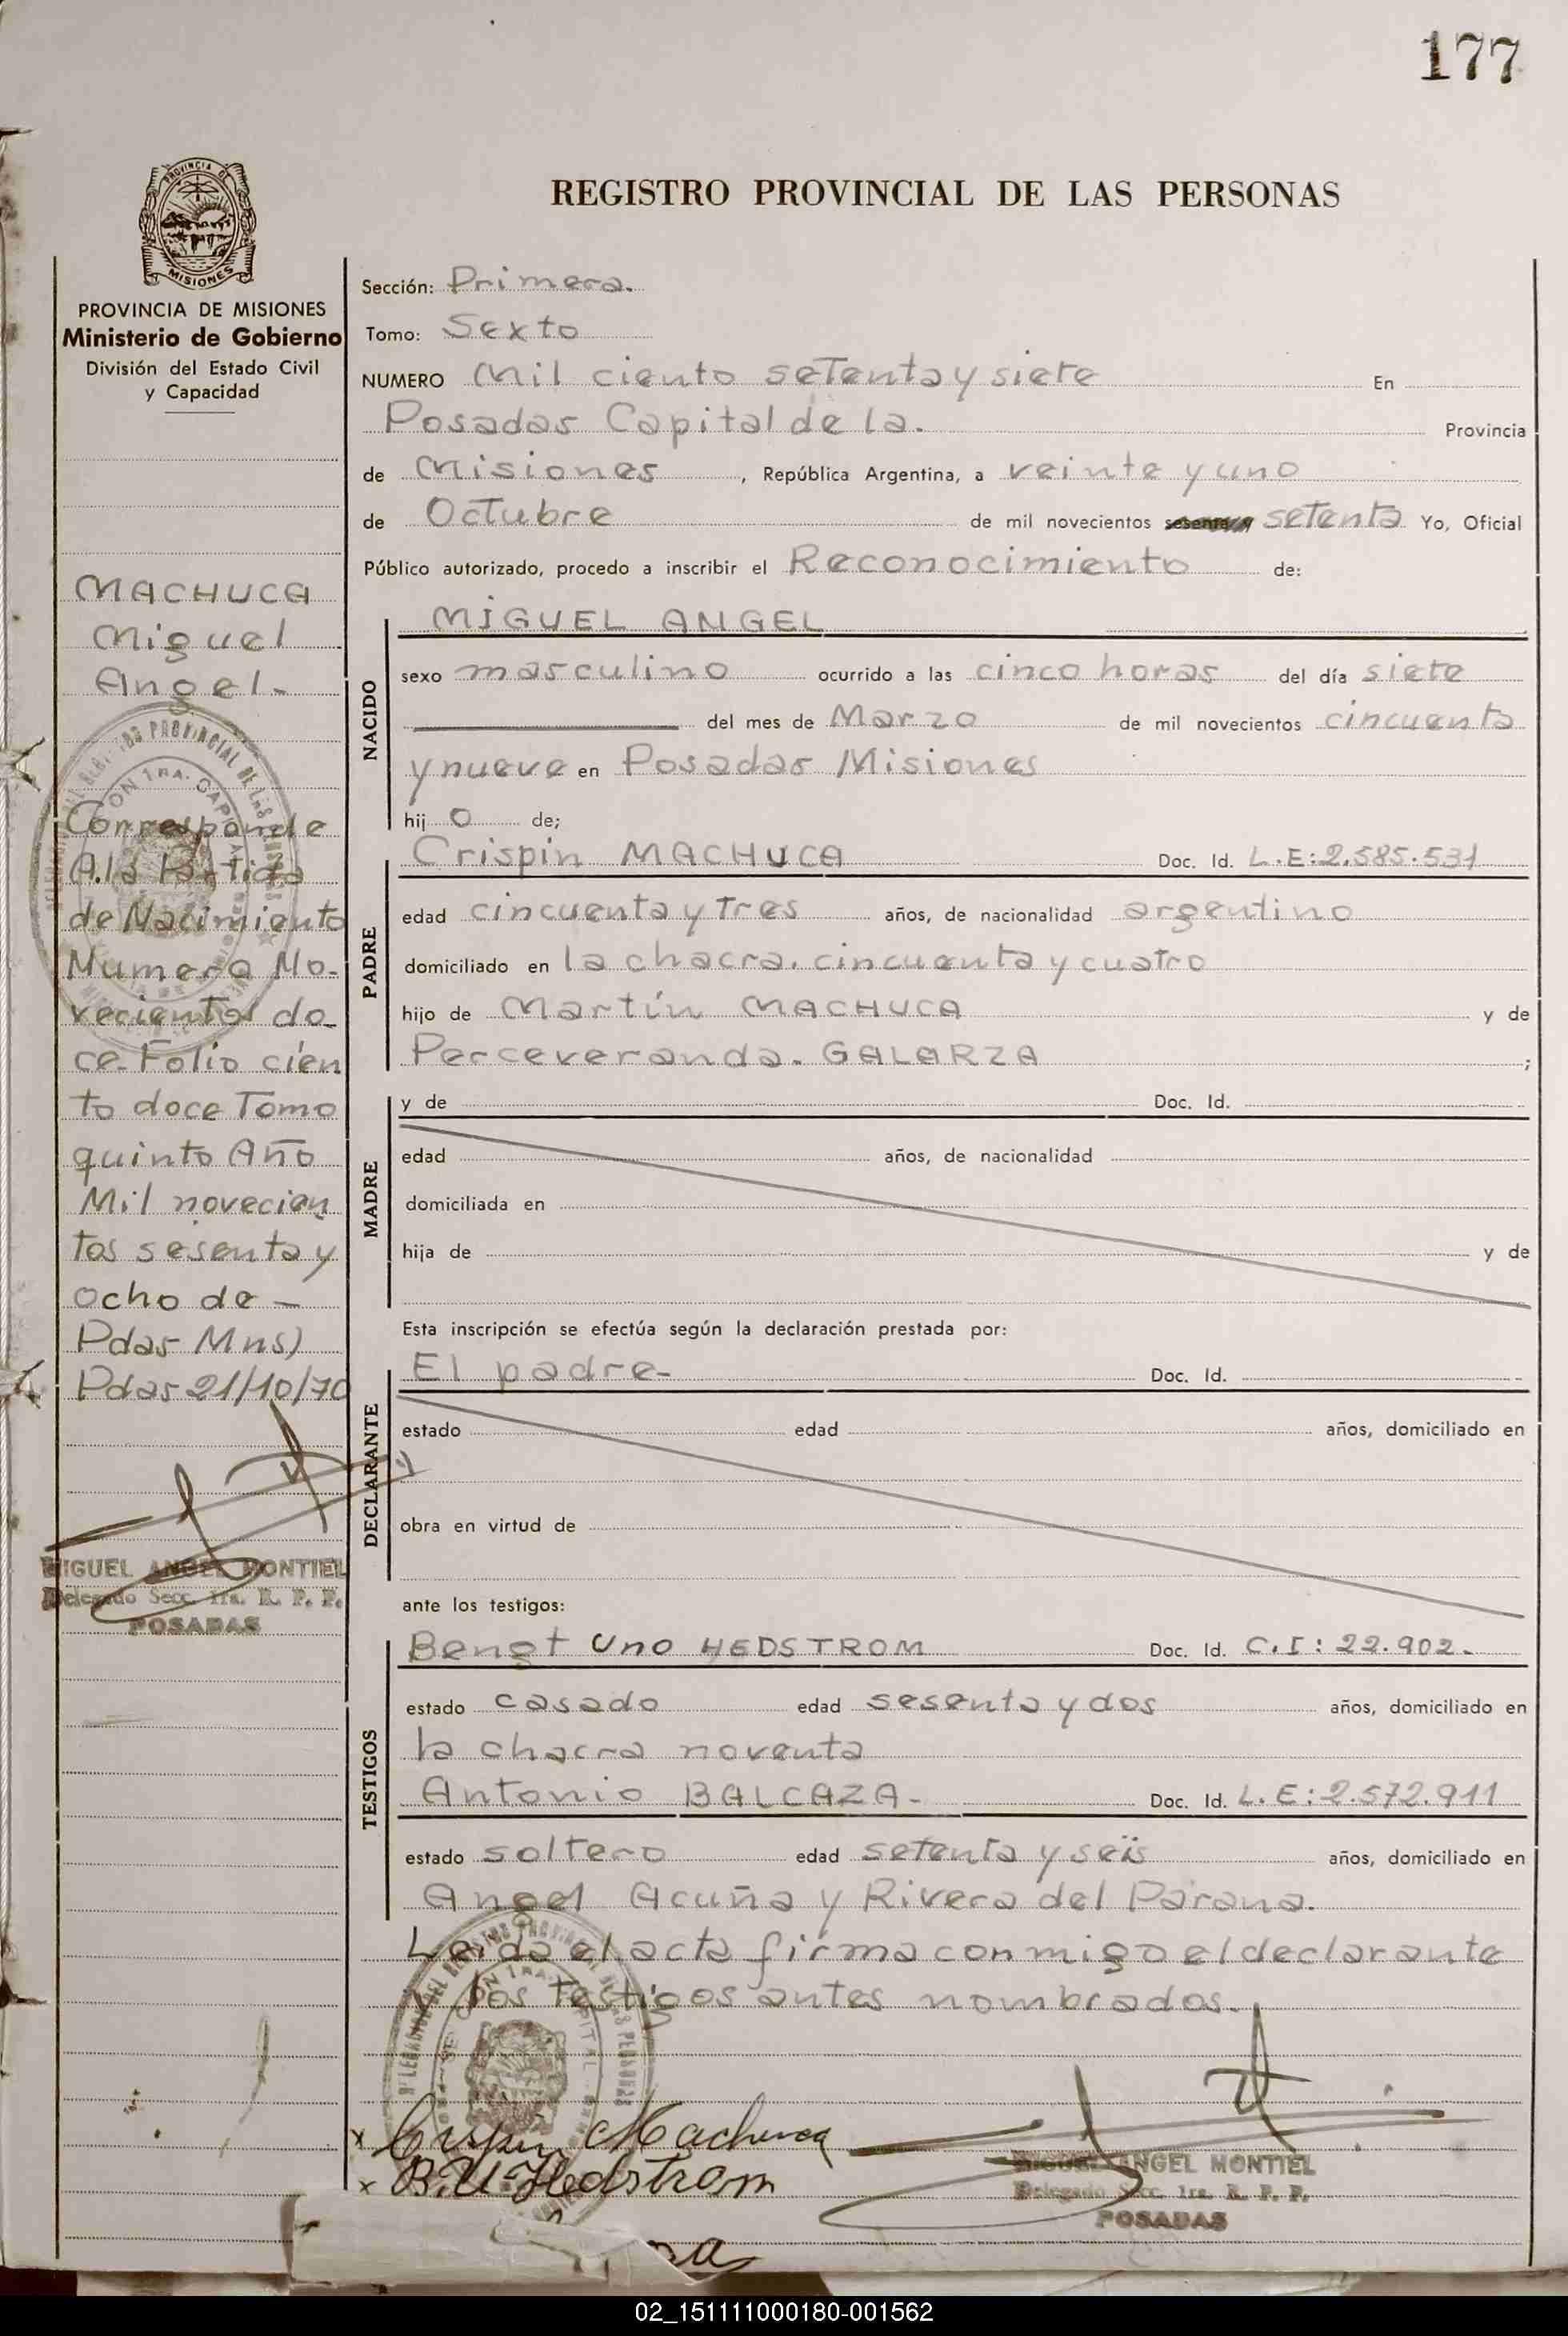 177
PROVINCIA DE
MISIONES
REGISTRO PROVINCIAL DE LAS PERSONAS
PROVINCIA DE MISIONES
Ministerio de Gobierno
División del Estado Civil
y Capacidad
MACHUCA
Miguel
Angel-
Corresponde
A.la Partida
de Nacimiento
Numero No-
vecientos do-
ce-Folio cien
to doce Tomo
quinto Año
Mil novecien
tos sesenta y
ocho de -
Pdas Mns)
Pdas 21/10/70
MIGUEL ANGEL MONTIEL
Delegado Secc. 1ra. R. P. P.
POSADAS
Sección: Primera.
Tomo: Sexto
NUMERO Mil ciento setenta y siete En
Posadas Capital de la. Provincia
de Misiones, República Argentina, a veinte y uno
de Octubre de mil novecientos sesenta y setenta Yo, Oficial
Público autorizado, procedo a inscribir el Reconocimiento de:
NACIDO
MIGUEL ANGEL
sexo masculino ocurrido a las cinco horas del día siete
del mes de Marzo de mil novecientos cincuenta
y nueve en Posadas Misiones
hij o de;
PADRE
Crispin MACHUCA Doc. Id. L.E:2.585.531
edad cincuenta y tres años, de nacionalidad argentino
domiciliado en la chacra. cincuenta y cuatro
hijo de Martín MACHUCA y de
Perceveranda. GALARZA ;
MADRE
y de Doc. Id.
edad años, de nacionalidad
domiciliada en
hija de y de
Esta inscripción se efectúa según la declaración prestada por:
DECLARANTE
El padre- Doc. Id.
estado edad años, domiciliado en
obra en virtud de
ante los testigos:
TESTIGOS
Bengt Uno HEDSTROM Doc. Id. C.I: 22.902.-
estado casado edad sesenta y dos años, domiciliado en
la chacra noventa
Antonio BALCAZA- Doc. Id. L.E:2.572.911
estado soltero edad setenta y seis años, domiciliado en
Angel Acuña y Rivera del Parana.
Leida el acta firma conmigo el declarante
y los testigos antes nombrados.-
x Crispin Machuca
x B.U.Hedstrom
MIGUEL ANGEL MONTIEL
Delegado Secc. 1ra. R. P. P.
POSADAS
02_151111000180-001562